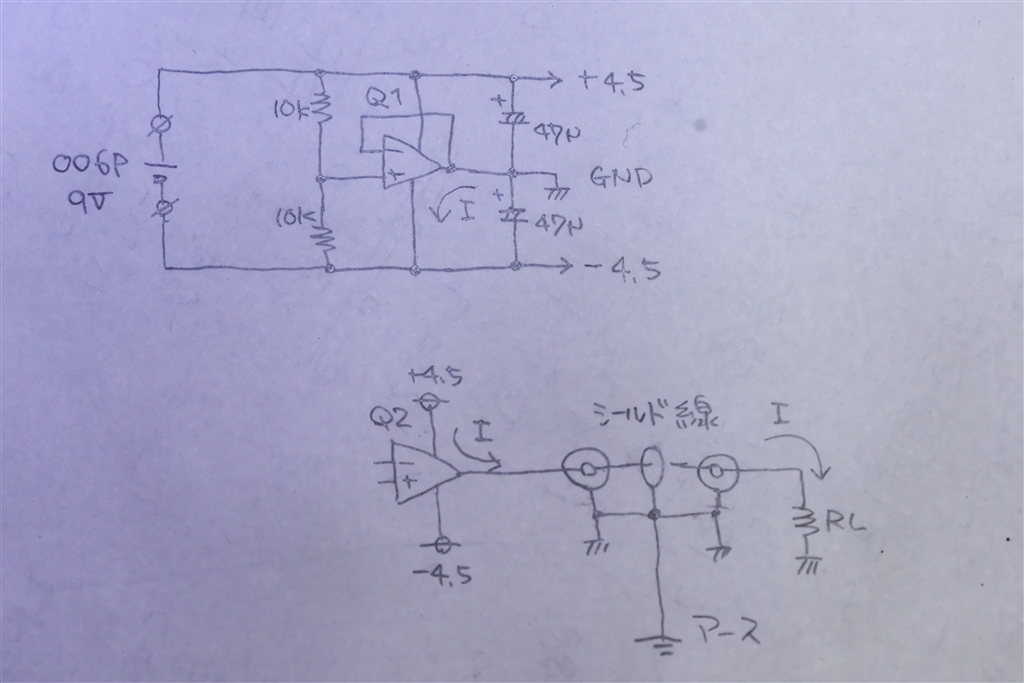 +4.5
10k
Q1
+
47μ
006P
9V
-
+
GND
I
+
10k
47μ
-4.5
+4.5
Q2
I
シールド線
I
-
+
RL
-4.5
アース